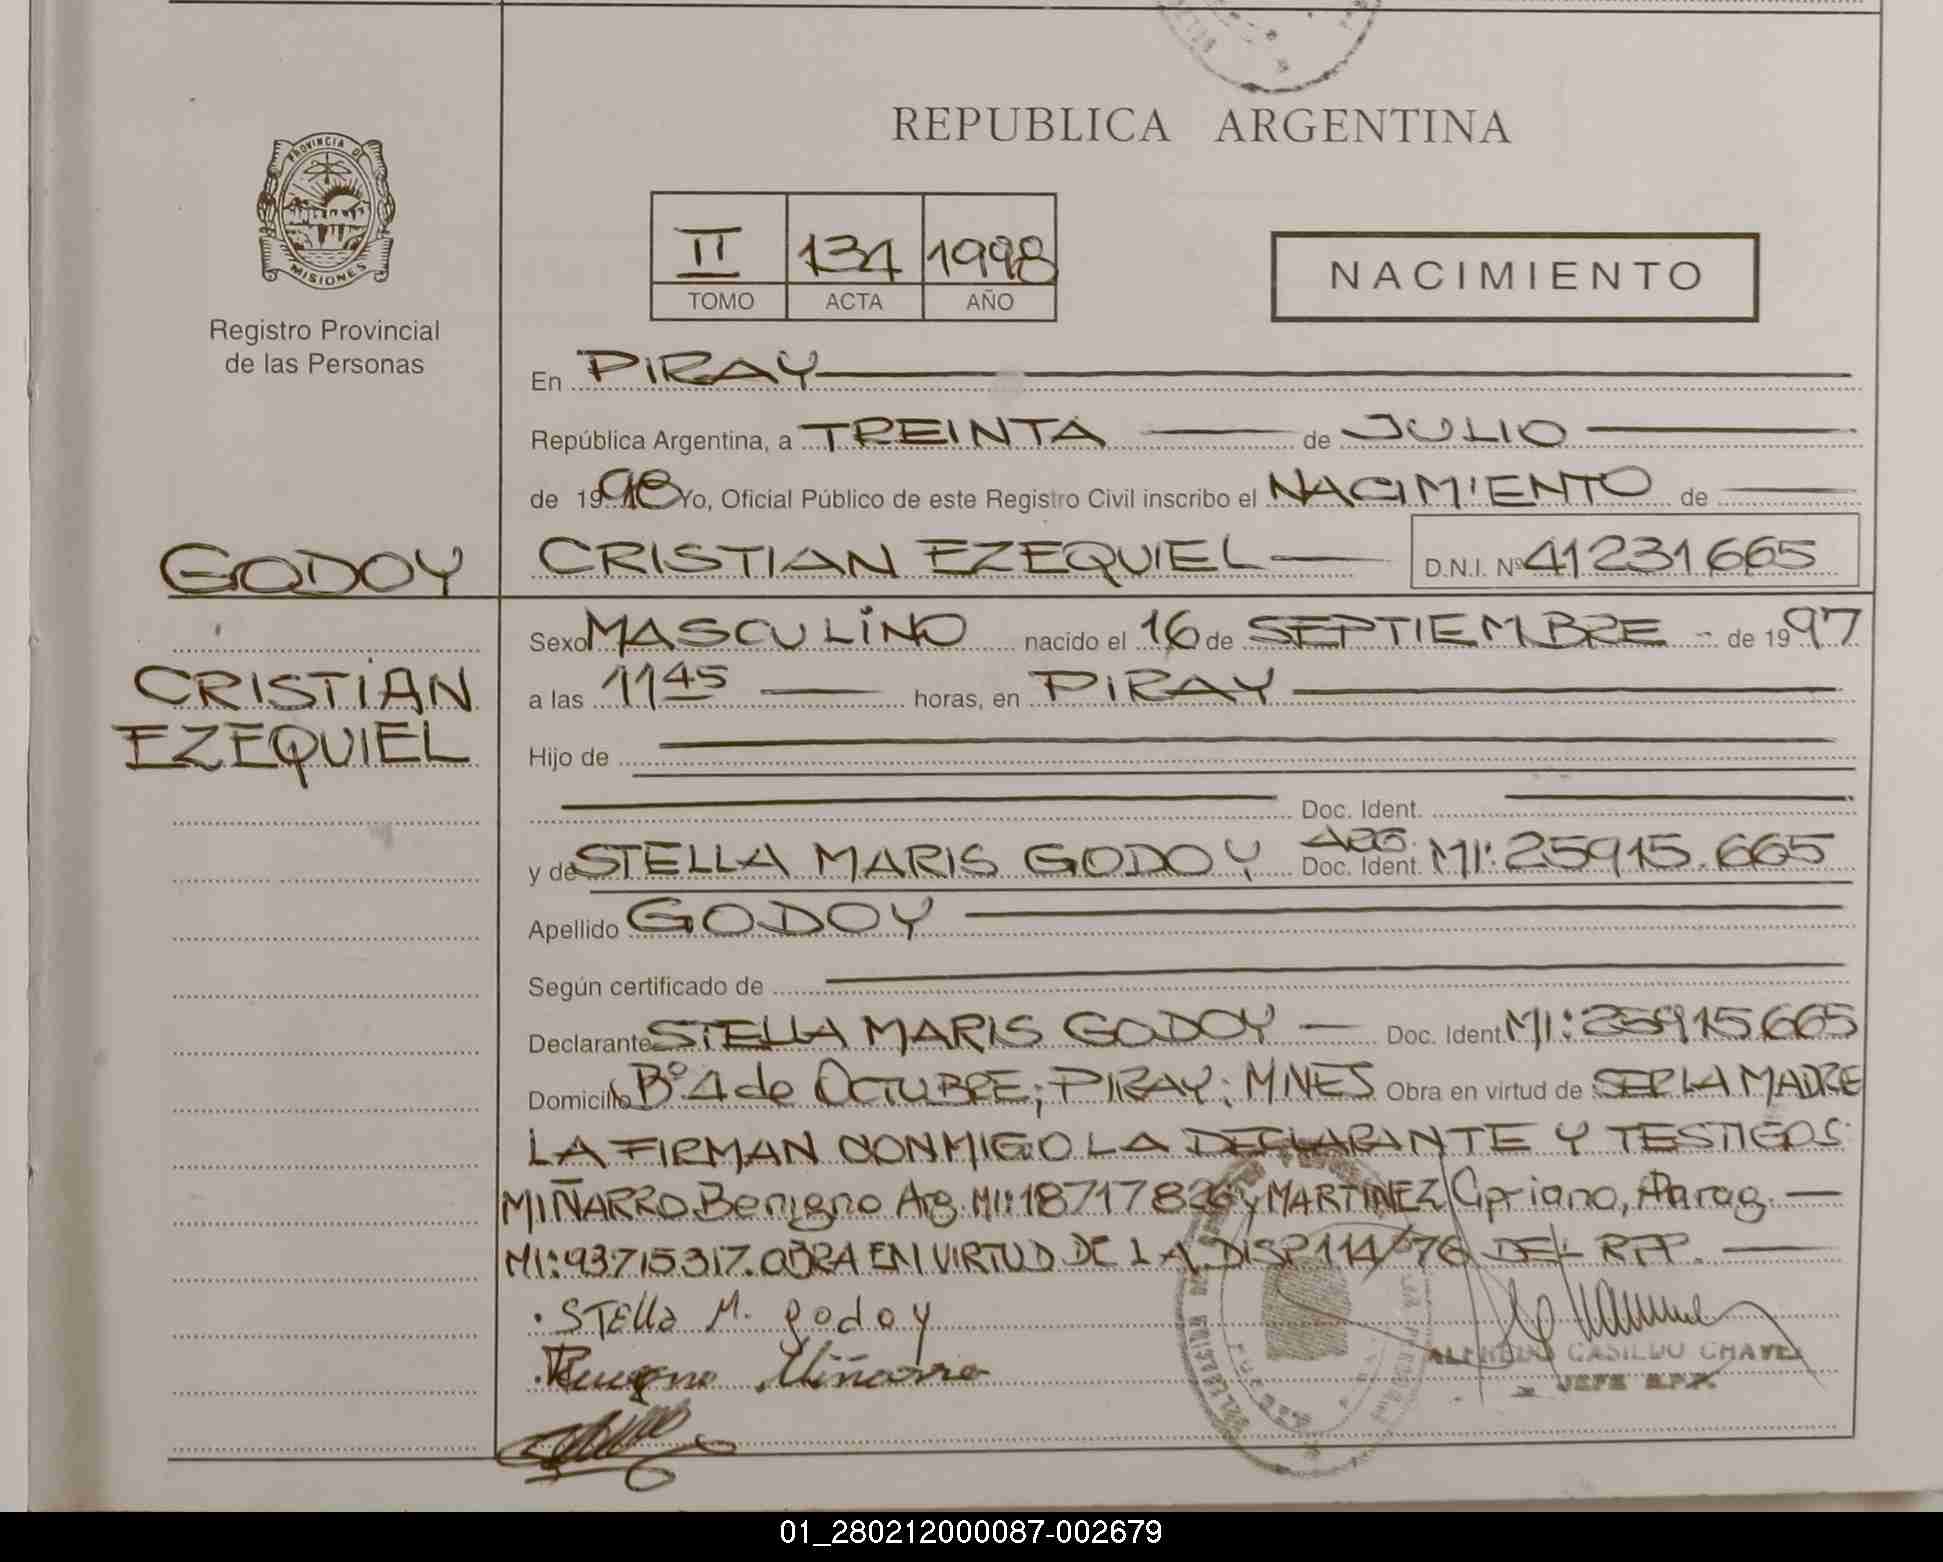 REPUBLICA ARGENTINA
PROVINCIA DE
MISIONES
II 134 1998
TOMO ACTA AÑO
NACIMIENTO
Registro Provincial
de las Personas
En PIRAY
República Argentina, a TREINTA de JULIO
de 1998 Yo, Oficial Público de este Registro Civil inscribo el NACIMIENTO de
GODOY
CRISTIAN EZEQUIEL D.N.I. Nº 41231665
CRISTIAN
EZEQUIEL
Sexo MASCULINO nacido el 16 de SEPTIEMBRE de 1997
a las 11 45 horas, en PIRAY
Hijo de
Doc. Ident.
y de STELLA MARIS GODOY ARG. Doc. Ident. MI: 25915.665
Apellido GODOY
Según certificado de
Declarante STELLA MARIS GODOY Doc. Ident. MI: 25915665
Domicilio Bº 4 de OCTUBRE; PIRAY; MNES Obra en virtud de SER LA MADRE
LA FIRMAN CONMIGO LA DECLARANTE Y TESTIGOS:
MIÑARRO Benigno Arg. MI: 18717826 y MARTINEZ Cipriano, Parag.
MI: 93715317. OBRA EN VIRTUD DE LA DISP 114/76 DEL RPP.
STElla M. godoy
Benigno Miñarro
ALFREDO CASILDO CHAVEZ
JEFE R.P.P.
01_280212000087-002679